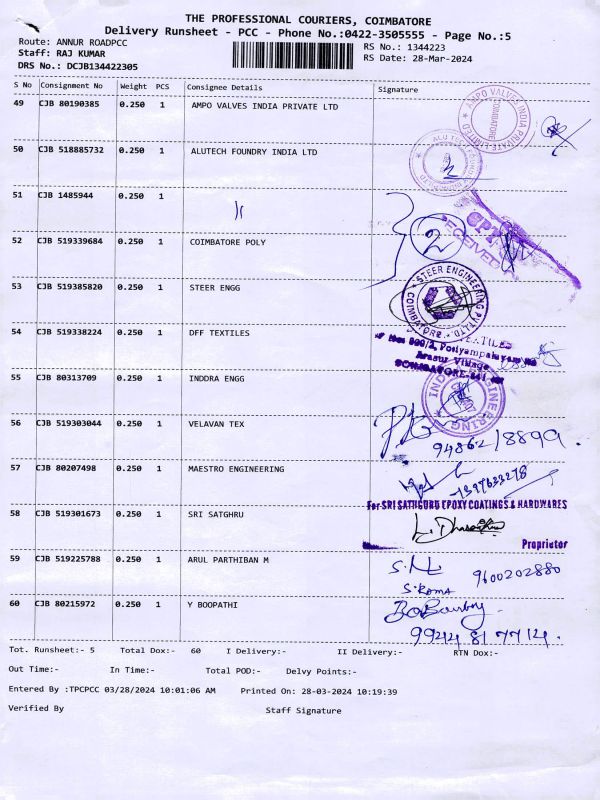 THE PROFESSIONAL COURIERS, COIMBATORE
Delivery Runsheet - PCC - Phone No.:0422-3505555 - Page No.:5
Route: ANNUR ROADPCC
RS No.: 1344223
Staff: RAJ KUMAR
RS Date: 28-Mar-2024
DRS No.: DCJB134422305
S No Consignment No Weight PCS Consignee Details Signature
49 CJB 80190385 0.250 1 AMPO VALVES INDIA PRIVATE LTD
AMPO VALVES INDIA PRIVATE LIMITED
COIMBATORE
50 CJB 518885732 0.250 1 ALUTECH FOUNDRY INDIA LTD
2
51 CJB 1485944 0.250 1 〃
52 CJB 519339684 0.250 1 COIMBATORE POLY
2
RECEIVED
53 CJB 519385820 0.250 1 STEER ENGG
STEER ENGINEERING P LTD.
COIMBATORE
54 CJB 519338224 0.250 1 DFF TEXTILES
Arasur Village
COIMBATORE-641
55 CJB 80313709 0.250 1 INDDRA ENGG
56 CJB 519303044 0.250 1 VELAVAN TEX
94862/8899.
57 CJB 80207498 0.250 1 MAESTRO ENGINEERING
For SRI SATHGURU EPOXY COATINGS & HARDWARES
58 CJB 519301673 0.250 1 SRI SATGHRU
Proprietor
59 CJB 519225788 0.250 1 ARUL PARTHIBAN M
9600202880
60 CJB 80215972 0.250 1 Y BOOPATHI
99448 17714.
Tot. Runsheet:- 5 Total Dox:- 60 I Delivery:- II Delivery:- RTN Dox:-
Out Time:- In Time:- Total POD:- Delvy Points:-
Entered By :TPCPCC 03/28/2024 10:01:06 AM Printed On: 28-03-2024 10:19:39
Verified By Staff Signature